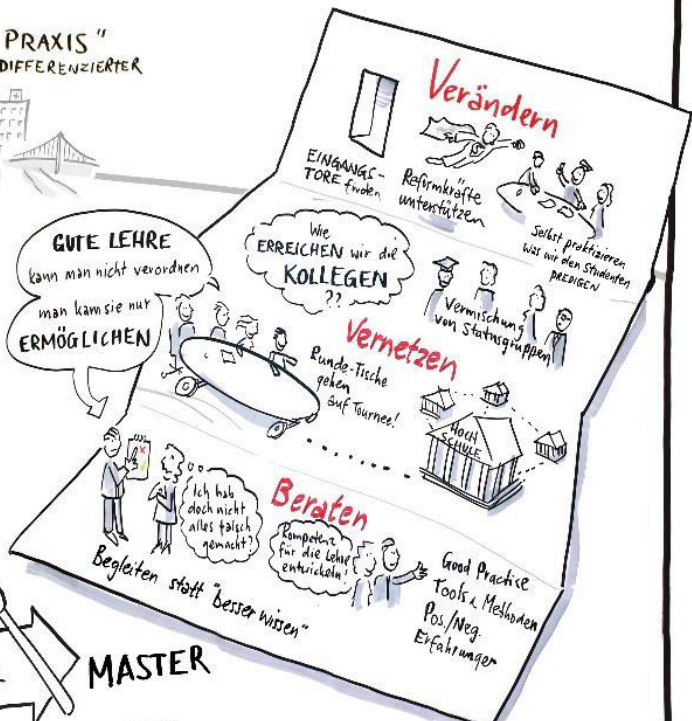 PRAXIS"
DIFFERENZIERTER
Verändern
EINGANGS-
TORE finden
Reformkräfte
unterstützen
Selbst praktizieren
was wir den Studenten
PREDIGEN
GUTE LEHRE
kann man nicht verordnen
man kann sie nur
ERMÖGLICHEN
Wie
ERREICHEN wir die
KOLLEGEN
??
Vermischung
von Statusgruppen
Vernetzen
Runde-Tische
gehen
auf Tournee!
HOCH
SCHULE
Beraten
Ich hab
doch nicht
alles falsch
gemacht?
Kompetenz
für die Lehre
entwickeln!
Begleiten statt "besser wissen"
Good Practise
Tools & Methoden
Pos./Neg.
Erfahrungen
MASTER